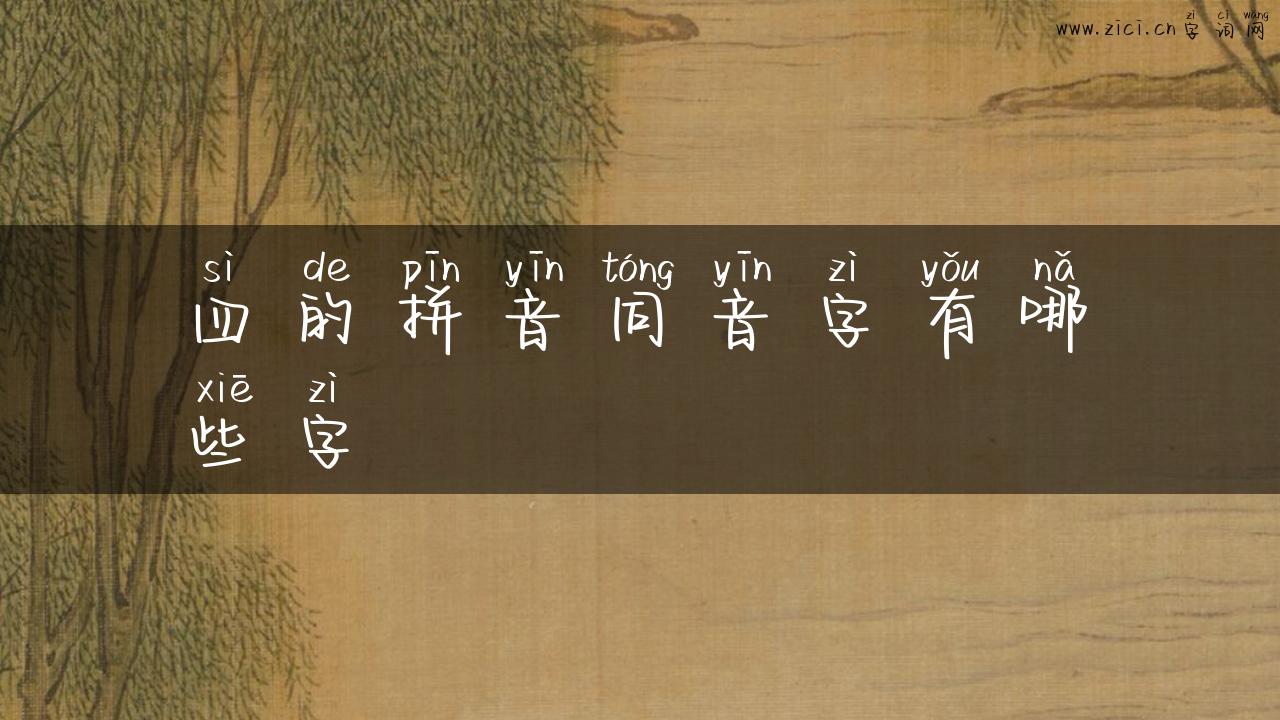 zì cí wǎng
www.zici.cn 字 词 网
sì de pīn yīn tóng yīn zì yǒu nǎ
四 的 拼 音 同 音 字 有 哪
xiē zì
些 字